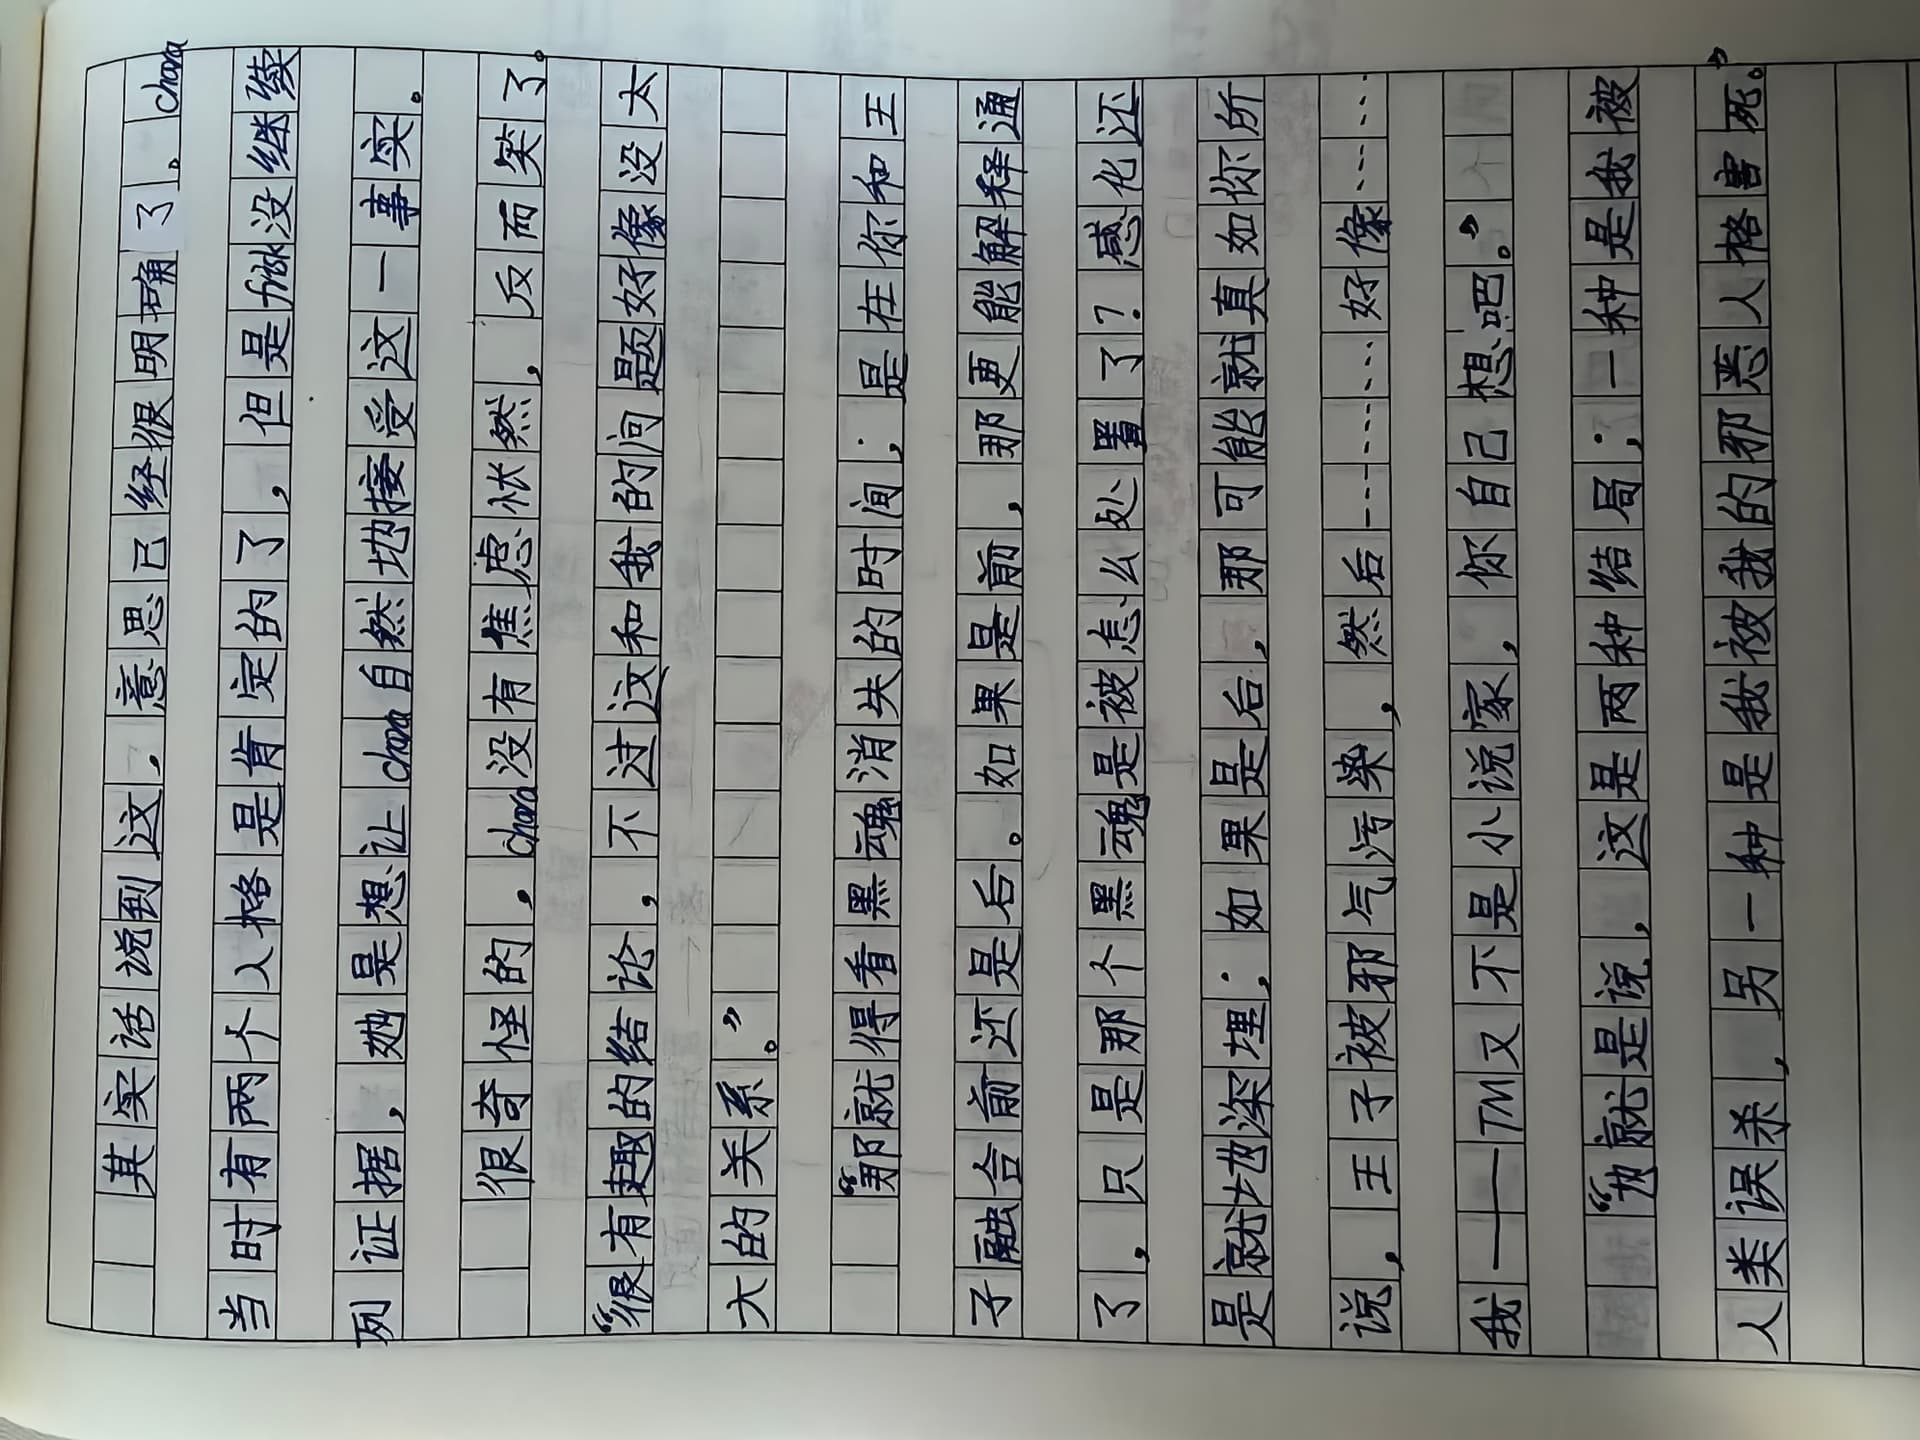 其实话说到这，意思已经很明确了。chara
当时有两个人格是肯定的了，但是frisk没继续
列证据，她是想让chara自然地接受这一事实。
很奇怪的，chara没有焦虑怅然，反而笑了。
“很有趣的结论，不过这和我的问题好像没太
大的关系。”
“那就得看黑魂消失的时间；是在你和王
子融合前还是后。如果是前，那更能解释通
了，只是那个黑魂是被怎么处置了？感化还
是就地深埋；如果是后，那可能就真如你所
说，王子被邪气污染，然后………好像……
我——TM又不是小说家，你自己想吧。”
“也就是说，这是两种结局；一种是我被
人类误杀，另一种是我被我的邪恶人格害死。”